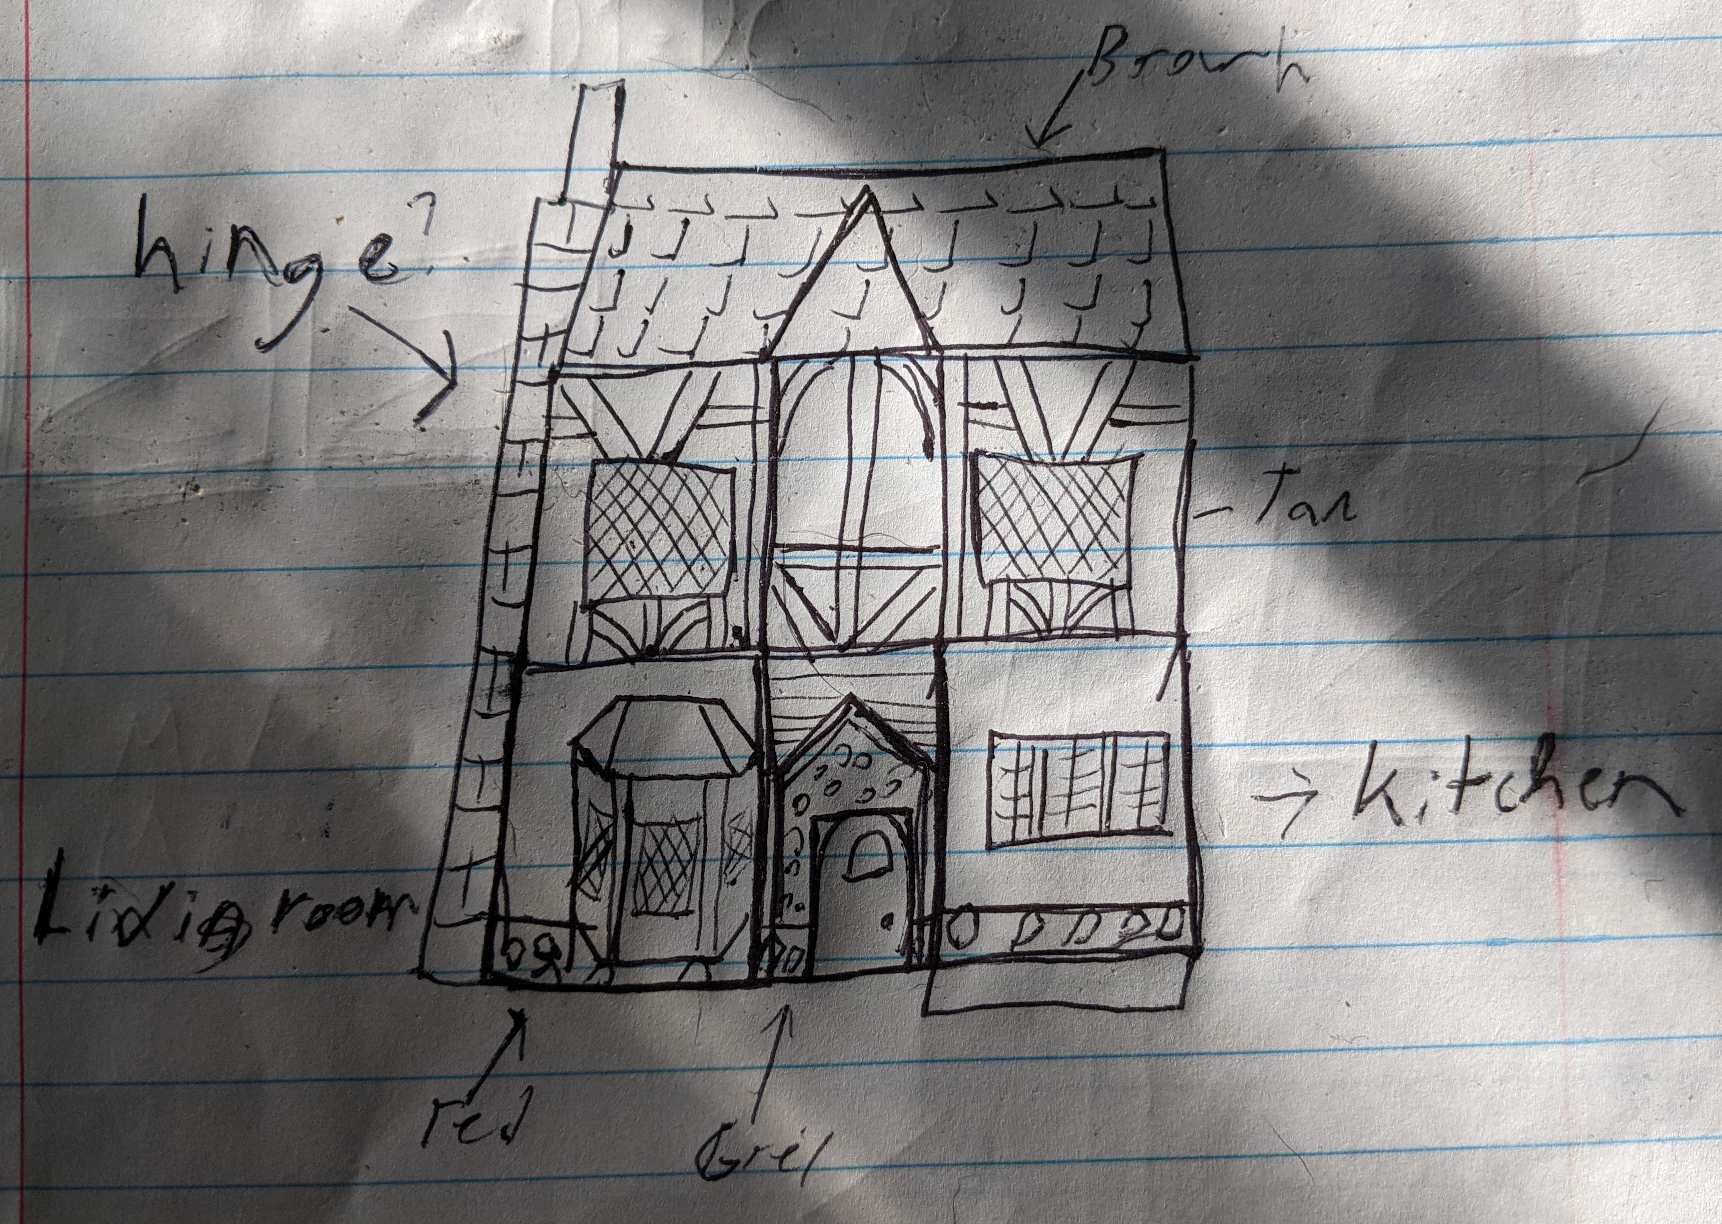 Brown
hinge?
- Tan
→ Kitchen
Living room
red
Grey